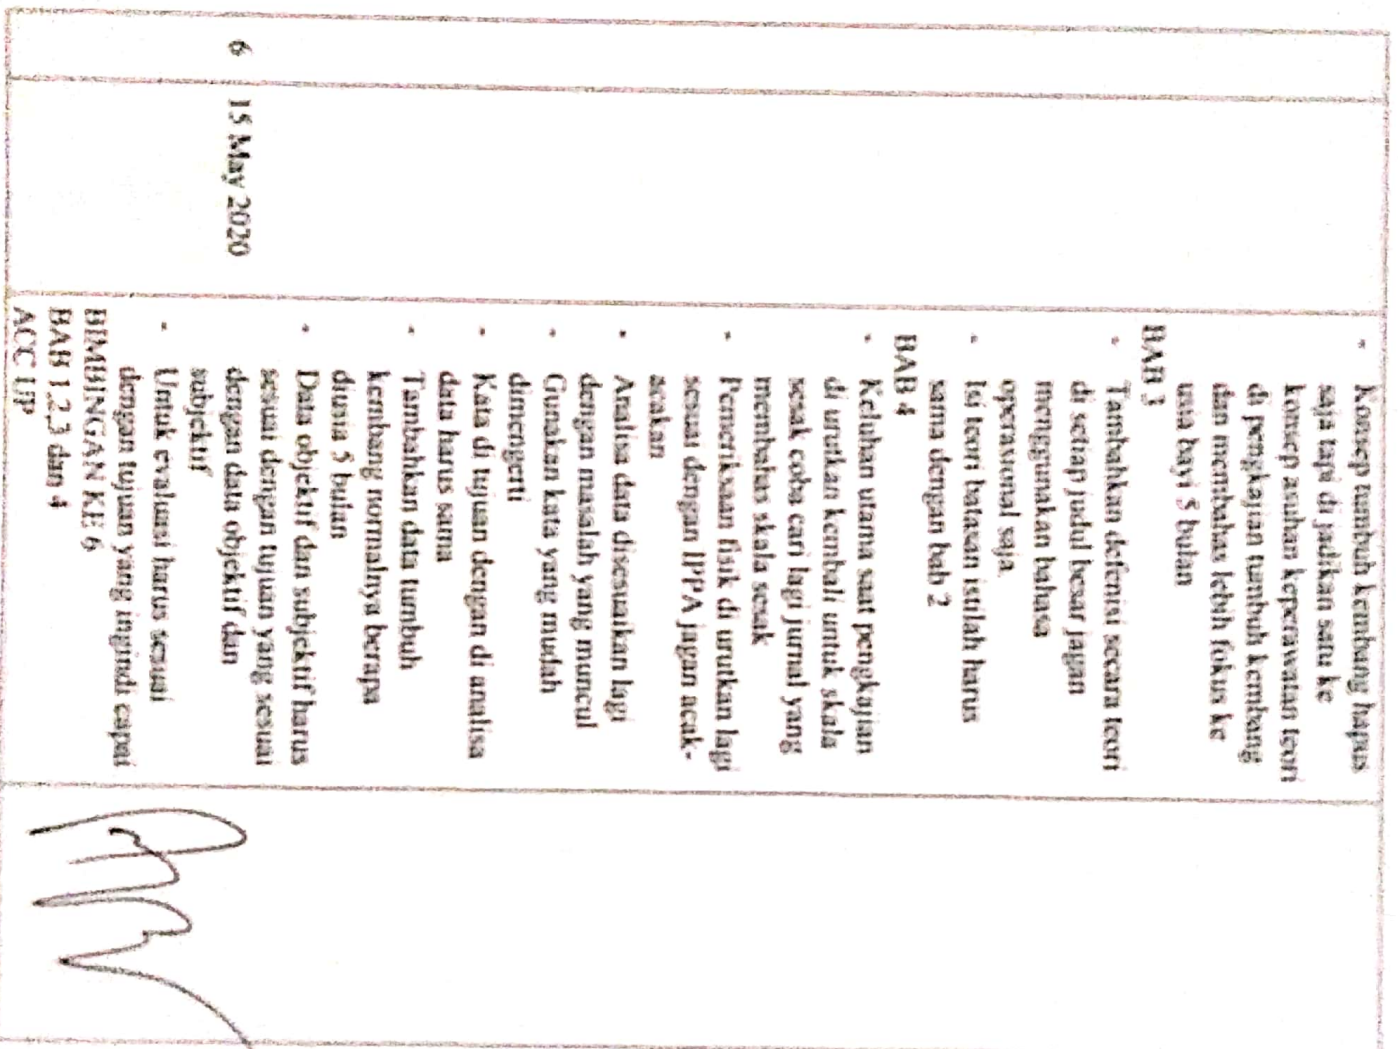 • Konsep tumbuh kembang hapus
saja tapi di jadikan satu ke
konsep asuhan keperawatan teori
di pengkajian tumbuh kembang
dan membahas lebih fokus ke
usia bayi 5 bulan
BAB 3
• Tambahkan defenisi secara teori
di setiap judul besar jagan
menggunakan bahasa
operasional saja.
• Isi teori batasan istilah harus
sama dengan bab 2
BAB 4
• Keluhan utama saat pengkajian
di urutkan kembali untuk skala
sesak coba cari lagi jurnal yang
membahas skala sesak
• Pemeriksaan fisik di urutkan lagi
sesuai dengan IPPA jagan acak-
acakan
• Analisa data disesuaikan lagi
dengan masalah yang muncul
• Gunakan kata yang mudah
dimengerti
• Kata di tujuan dengan di analisa
data harus sama
• Tambahkan data tumbuh
kembang normalnya berapa
diusia 5 bulan
• Data objektif dan subjektif harus
sesuai dengan tujuan yang sesuai
dengan data objektif dan
subjektif
• Untuk evaluasi harus sesuai
dengan tujuan yang ingindi capai
6 15 May 2020
BIMBINGAN KE 6
BAB 1,2,3 dan 4
ACC UP